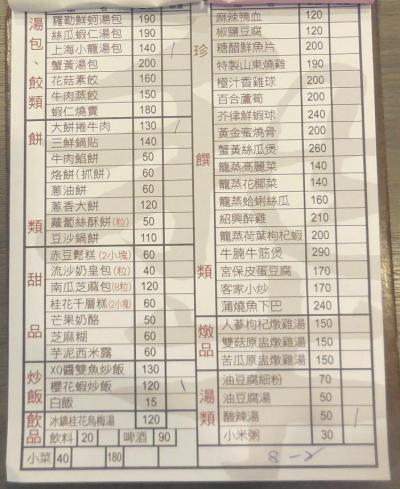 湯包、餃類
羅勒鮮蚵湯包 190
絲瓜蝦仁湯包 190
上海小籠湯包 140
蟹黃湯包 200
花菇素餃 160
牛肉蒸餃 150
蝦仁燒賣 180
餅類
大餅捲牛肉 130
三鮮鍋貼 140
牛肉餡餅 50
烙餅(抓餅) 60
蔥油餅 60
蔥香大餅 120
蘿蔔絲酥餅(粒) 50
豆沙鍋餅 110
甜品
赤豆鬆糕(2小塊) 60
流沙奶皇包(粒) 40
南瓜芝麻包(8粒) 120
桂花千層糕(2小塊) 60
芒果奶酪 50
芝麻糊 60
芋泥西米露 60
炒飯
XO醬雙魚炒飯 130
櫻花蝦炒飯 120
白飯 15
飲品
冰鎮桂花烏梅湯 120
飲料 20 啤酒 90
小菜 40 180
珍饌類
麻辣鴨血 120
椒鹽豆腐 120
糖醋鮮魚片 200
特製山東燒雞 190
極汁香雞球 200
百合蘆筍 200
芥律鮮蝦球 240
黃金蜜燒骨 200
蟹黃絲瓜煲 260
龍蒸高麗菜 140
龍蒸花椰菜 140
龍蒸蛤蜊絲瓜 160
紹興醉雞 210
龍蒸荷葉枸杞蝦 200
牛腩牛筋煲 290
宮保皮蛋豆腐 170
客家小炒 170
蒲燒魚下巴 240
燉品
人蔘枸杞燉雞湯 150
雙菇原盅燉雞湯 150
苦瓜原盅燉雞湯 150
湯類
油豆腐細粉 70
油豆腐湯 50
酸辣湯 50
小米粥 30
8-2